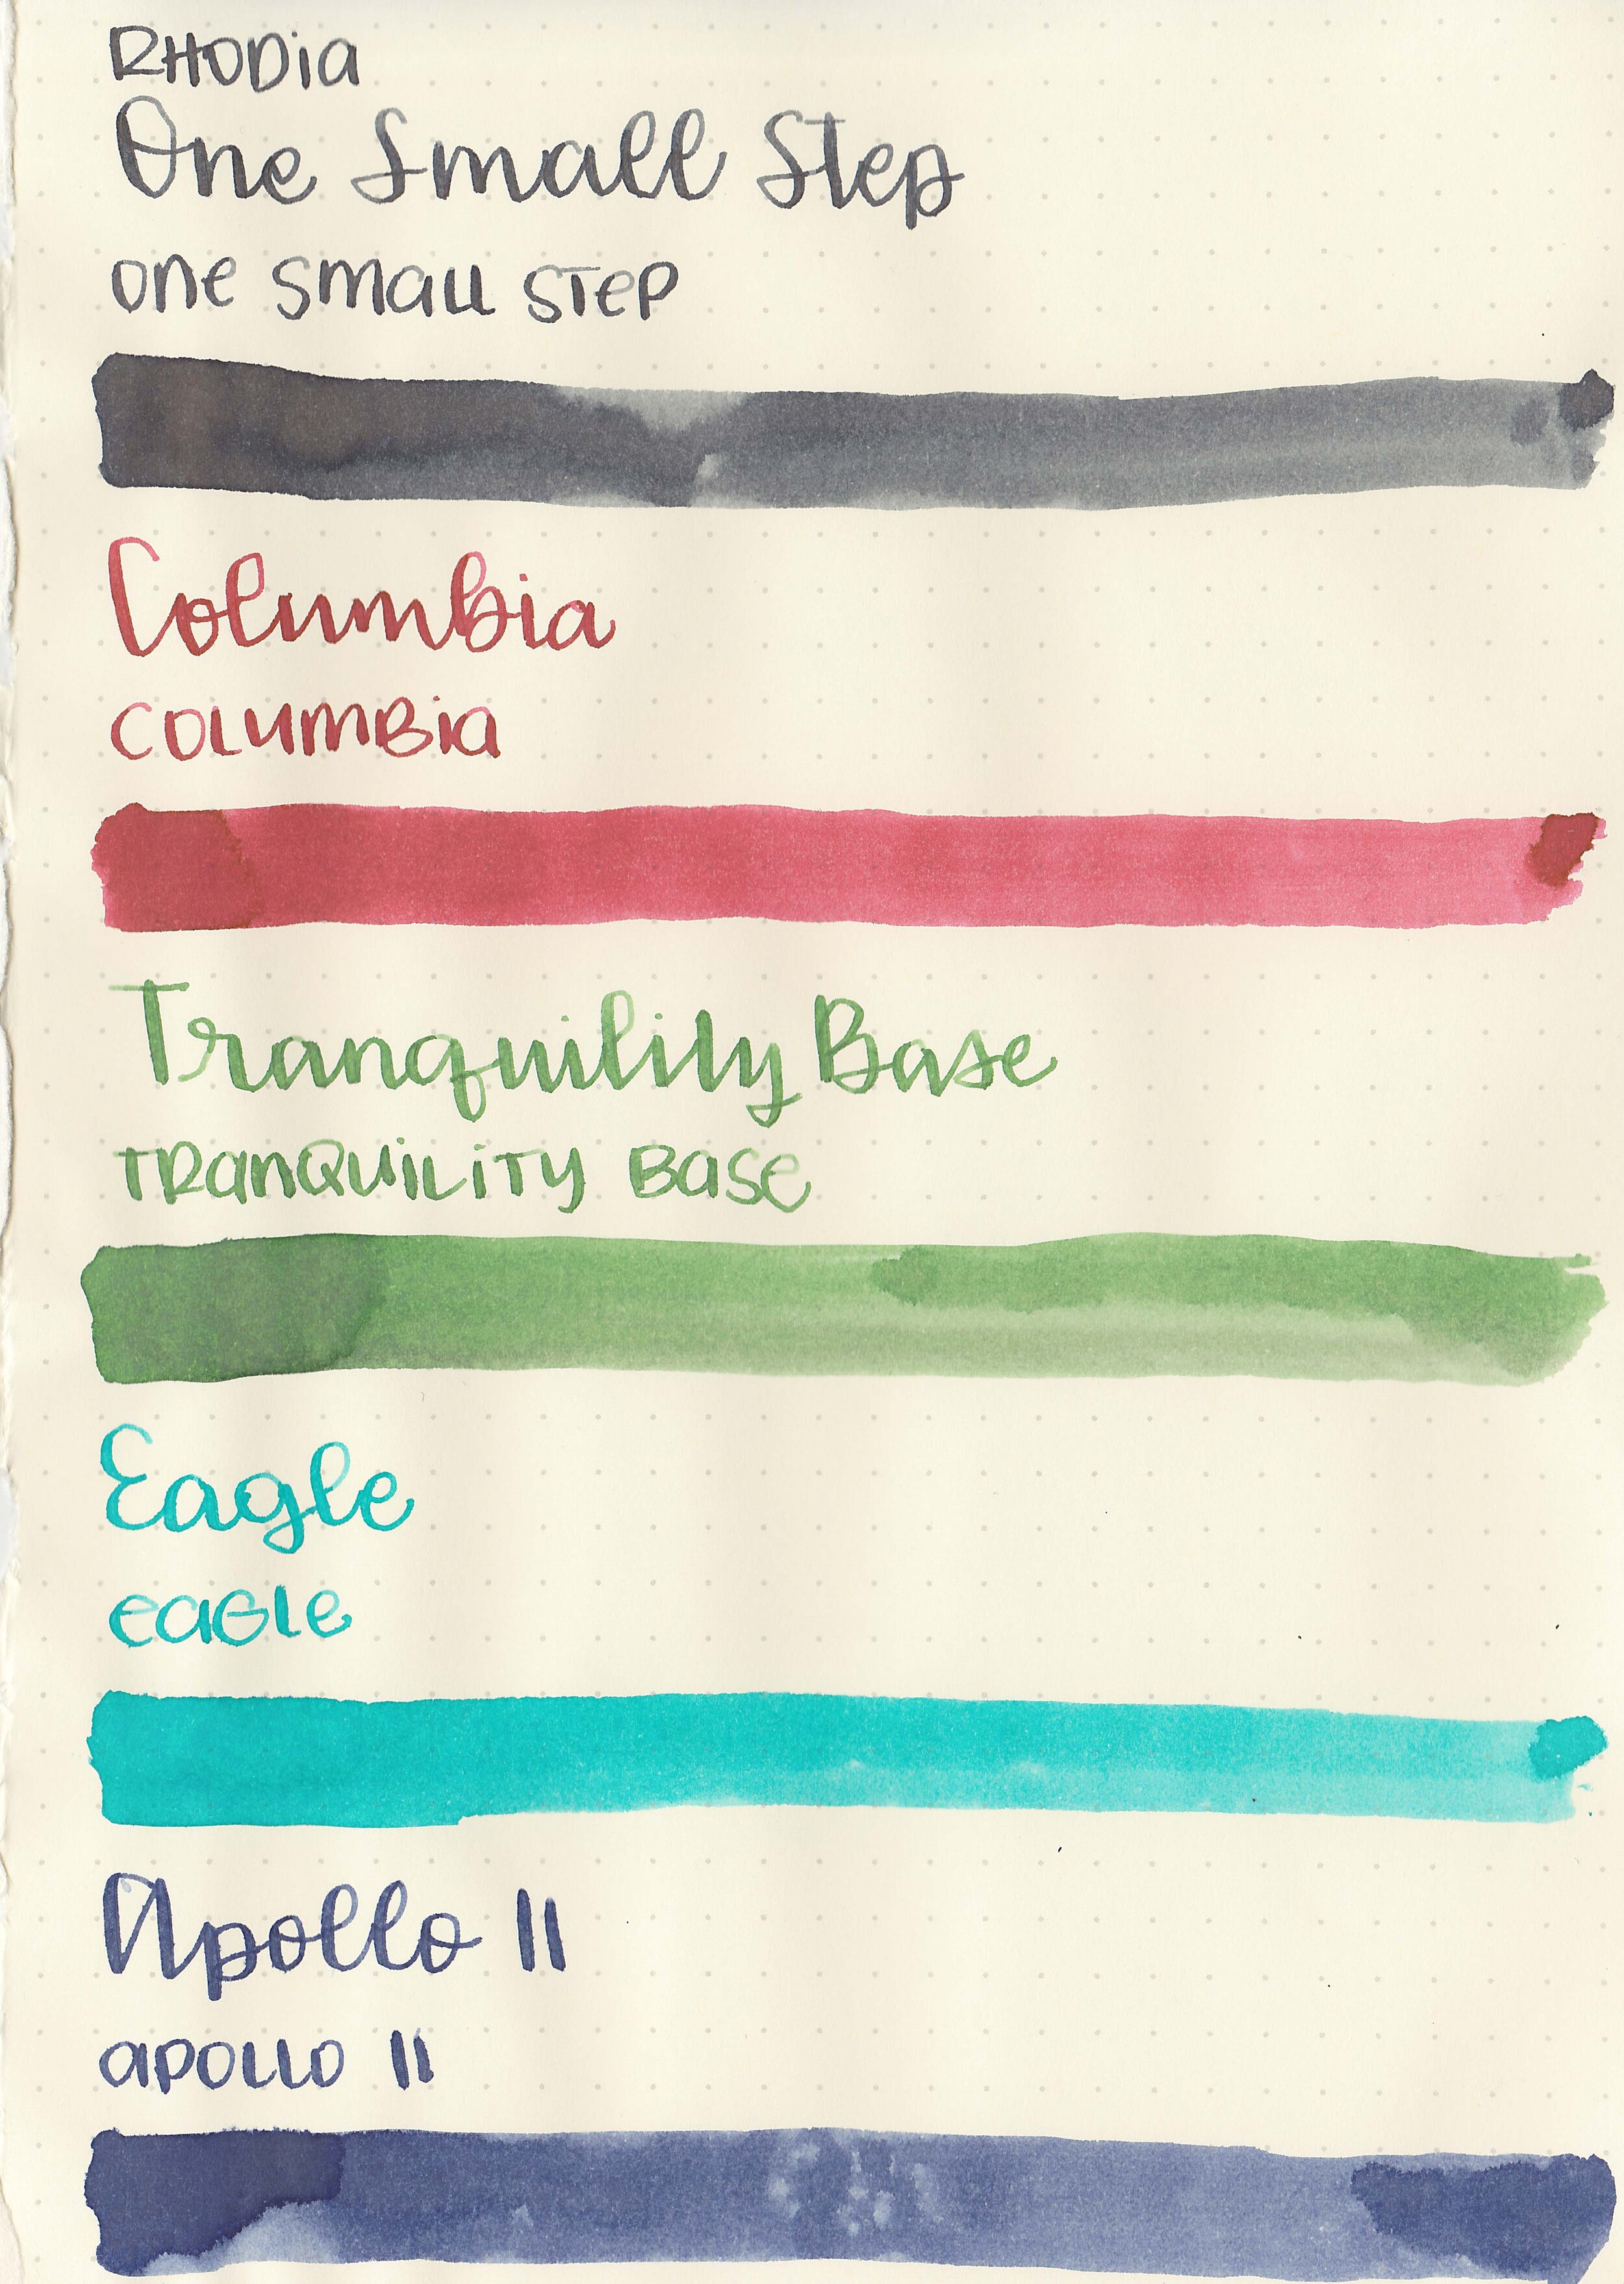 RHODia
One Small Step
one small step
Columbia
COLUMBia
Tranquility Base
TRanQUiLiTY Base
Eagle
eaGle
Apollo 11
apollo 11